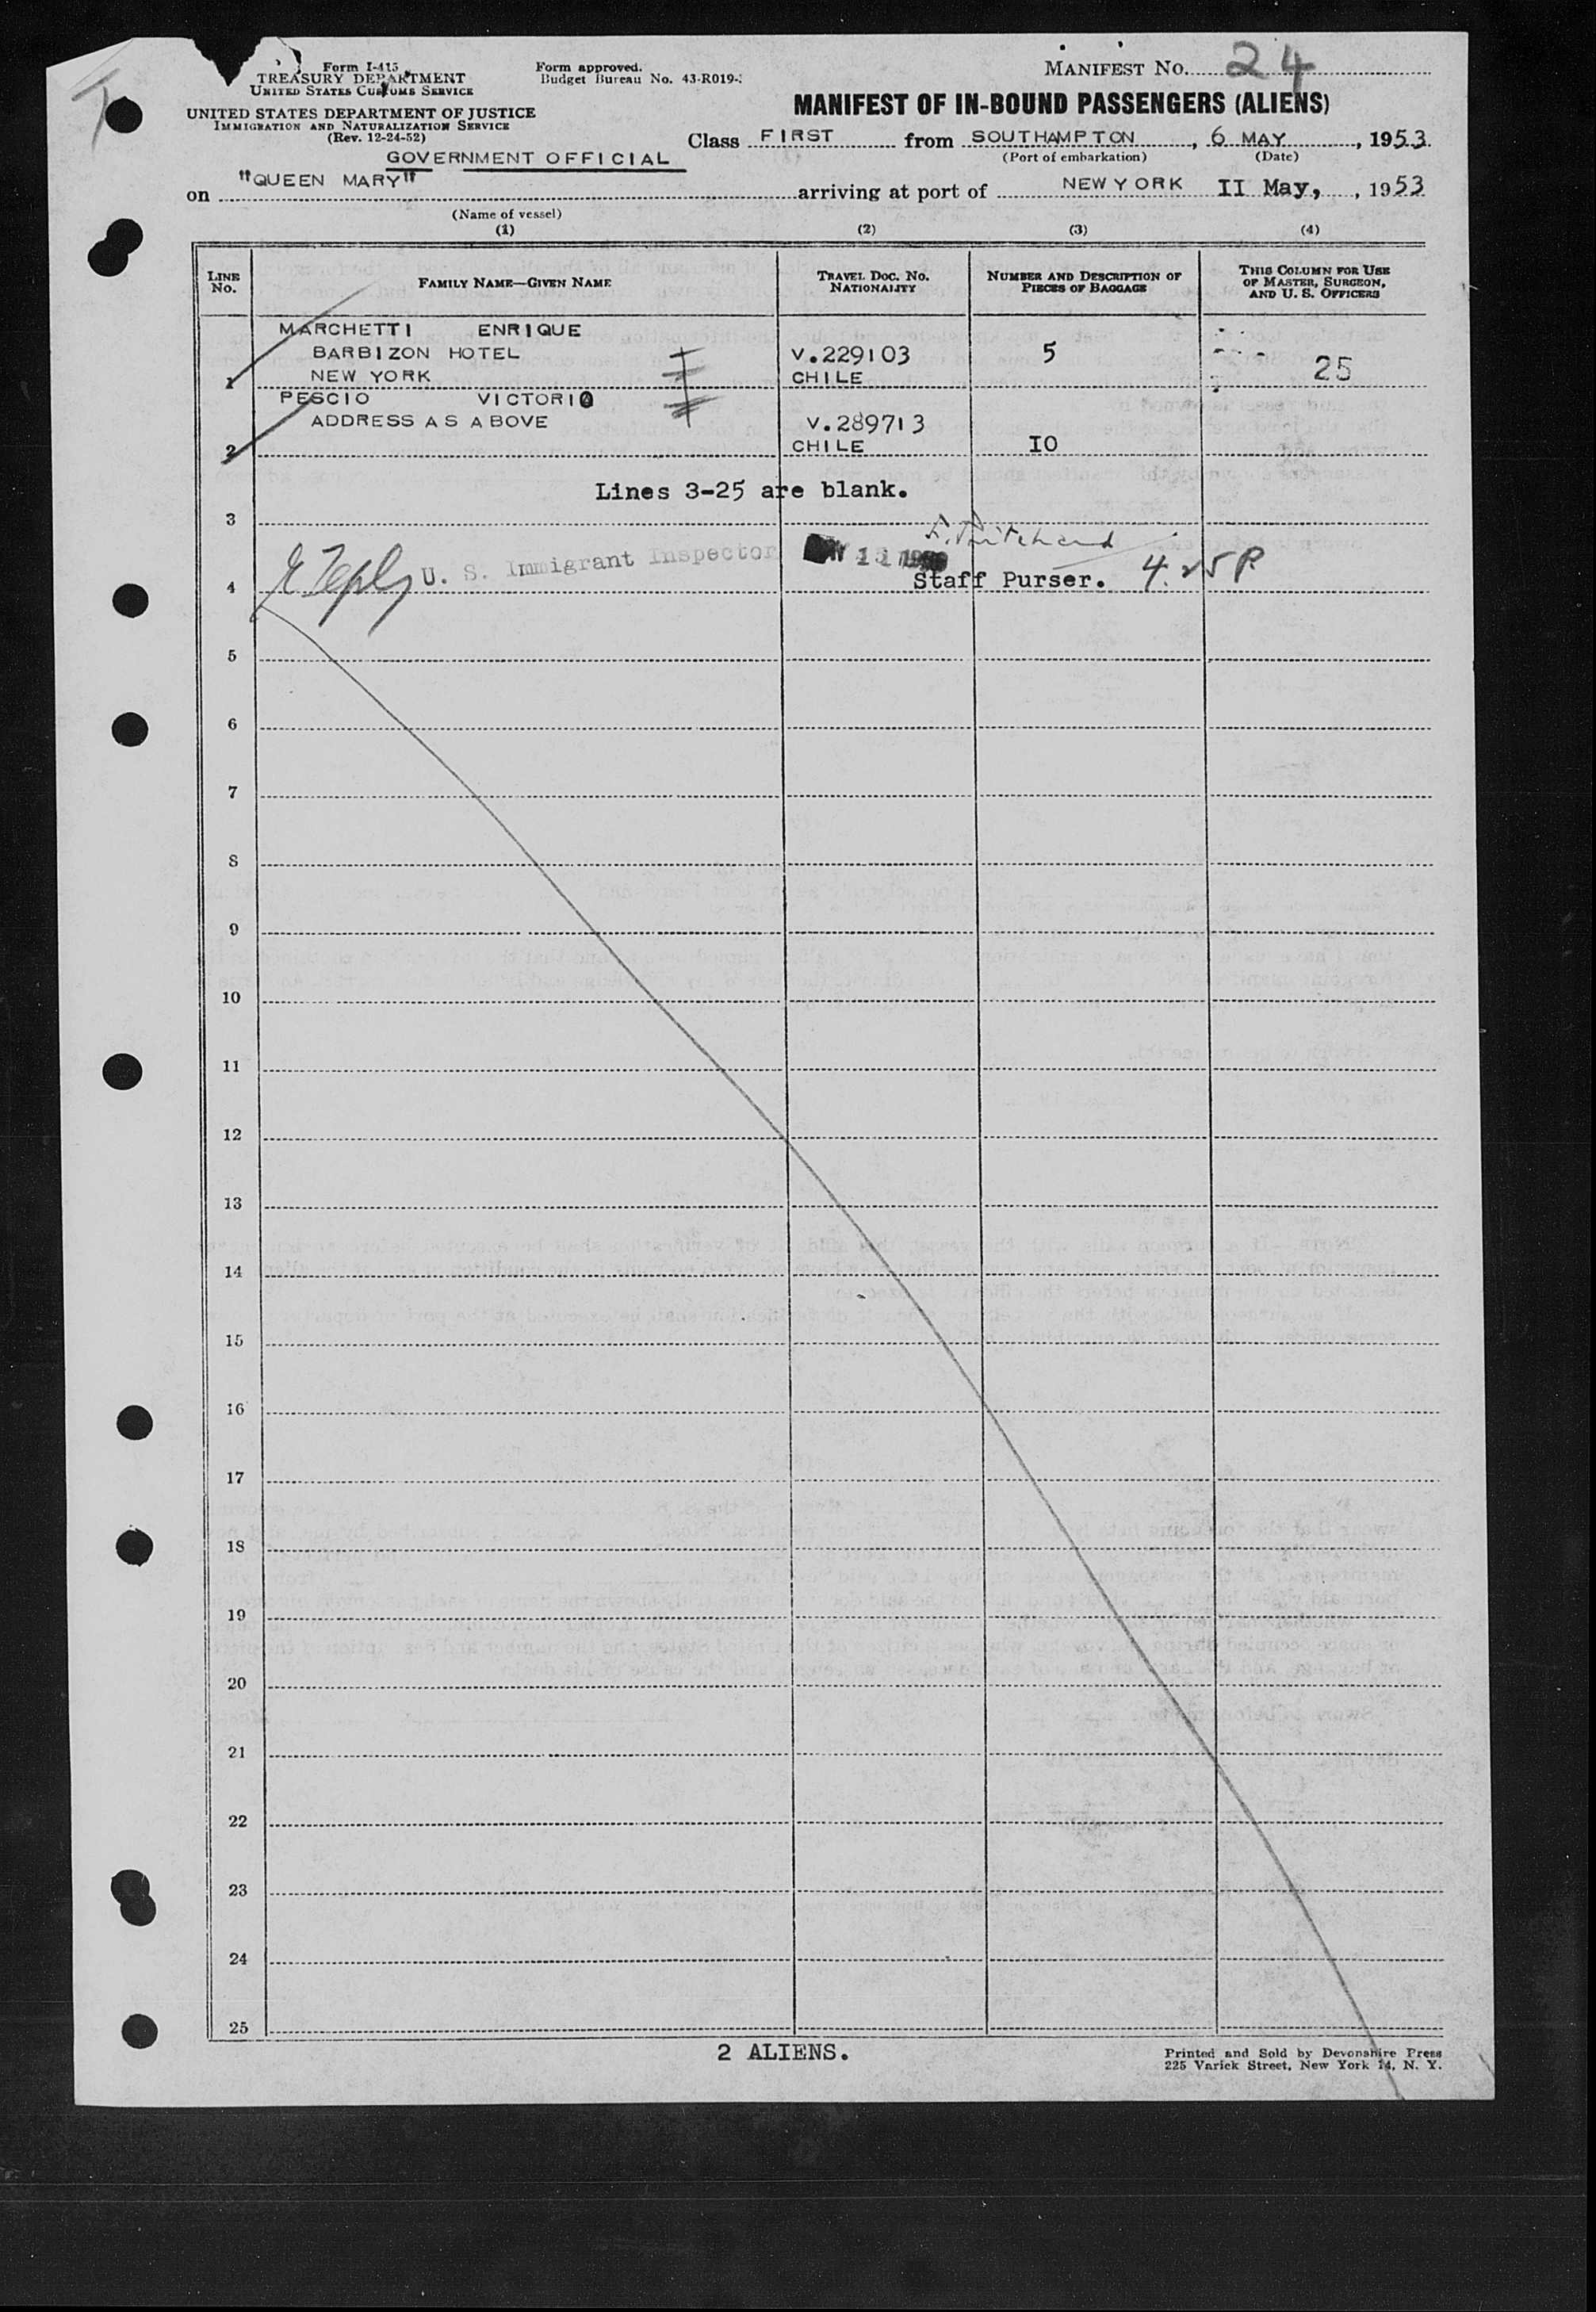 Form I-415
TREASURY DEPARTMENT
UNITED STATES CUSTOMS SERVICE
UNITED STATES DEPARTMENT OF JUSTICE
IMMIGRATION AND NATURALIZATION SERVICE
(Rev. 12-24-52)
Form approved.
Budget Bureau No. 43-R019-
MANIFEST NO. 24
MANIFEST OF IN-BOUND PASSENGERS (ALIENS)
Class FIRST from SOUTHAMPTON, 6 MAY, 1953
(Port of embarkation) (Date)
GOVERNMENT OFFICIAL
on "QUEEN MARY" arriving at port of NEW YORK II May, , 1953
(Name of vessel)
(1) (2) (3) (4)
LINE NO. FAMILY NAME—GIVEN NAME TRAVEL DOC. NO. NATIONALITY NUMBER AND DESCRIPTION OF PIECES OF BAGGAGE THIS COLUMN FOR USE OF MASTER, SURGEON, AND U. S. OFFICERS
MARCHETTI ENRIQUE
BARBIZON HOTEL V.229103 5
1 NEW YORK CHILE 25
PESCIO VICTORIO
ADDRESS AS ABOVE V.289713
2 CHILE IO
Lines 3-25 are blank.
3
U. S. Immigrant Inspector
4 Staff Purser. 4.25P.
5
6
7
8
9
10
11
12
13
14
15
16
17
18
19
20
21
22
23
24
25
2 ALIENS.
Printed and Sold by Devonshire Press
225 Varick Street, New York 14, N. Y.